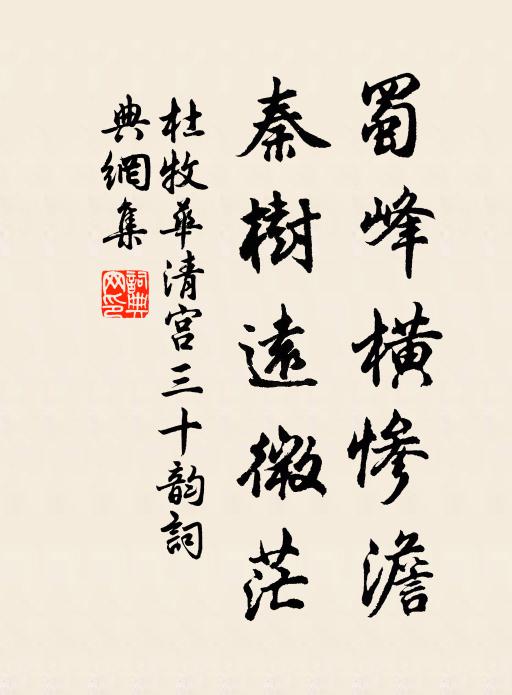 蜀峰橫慘澹
秦樹遠微茫
杜牧華清宮三十韵詞
典網集
詞典網印